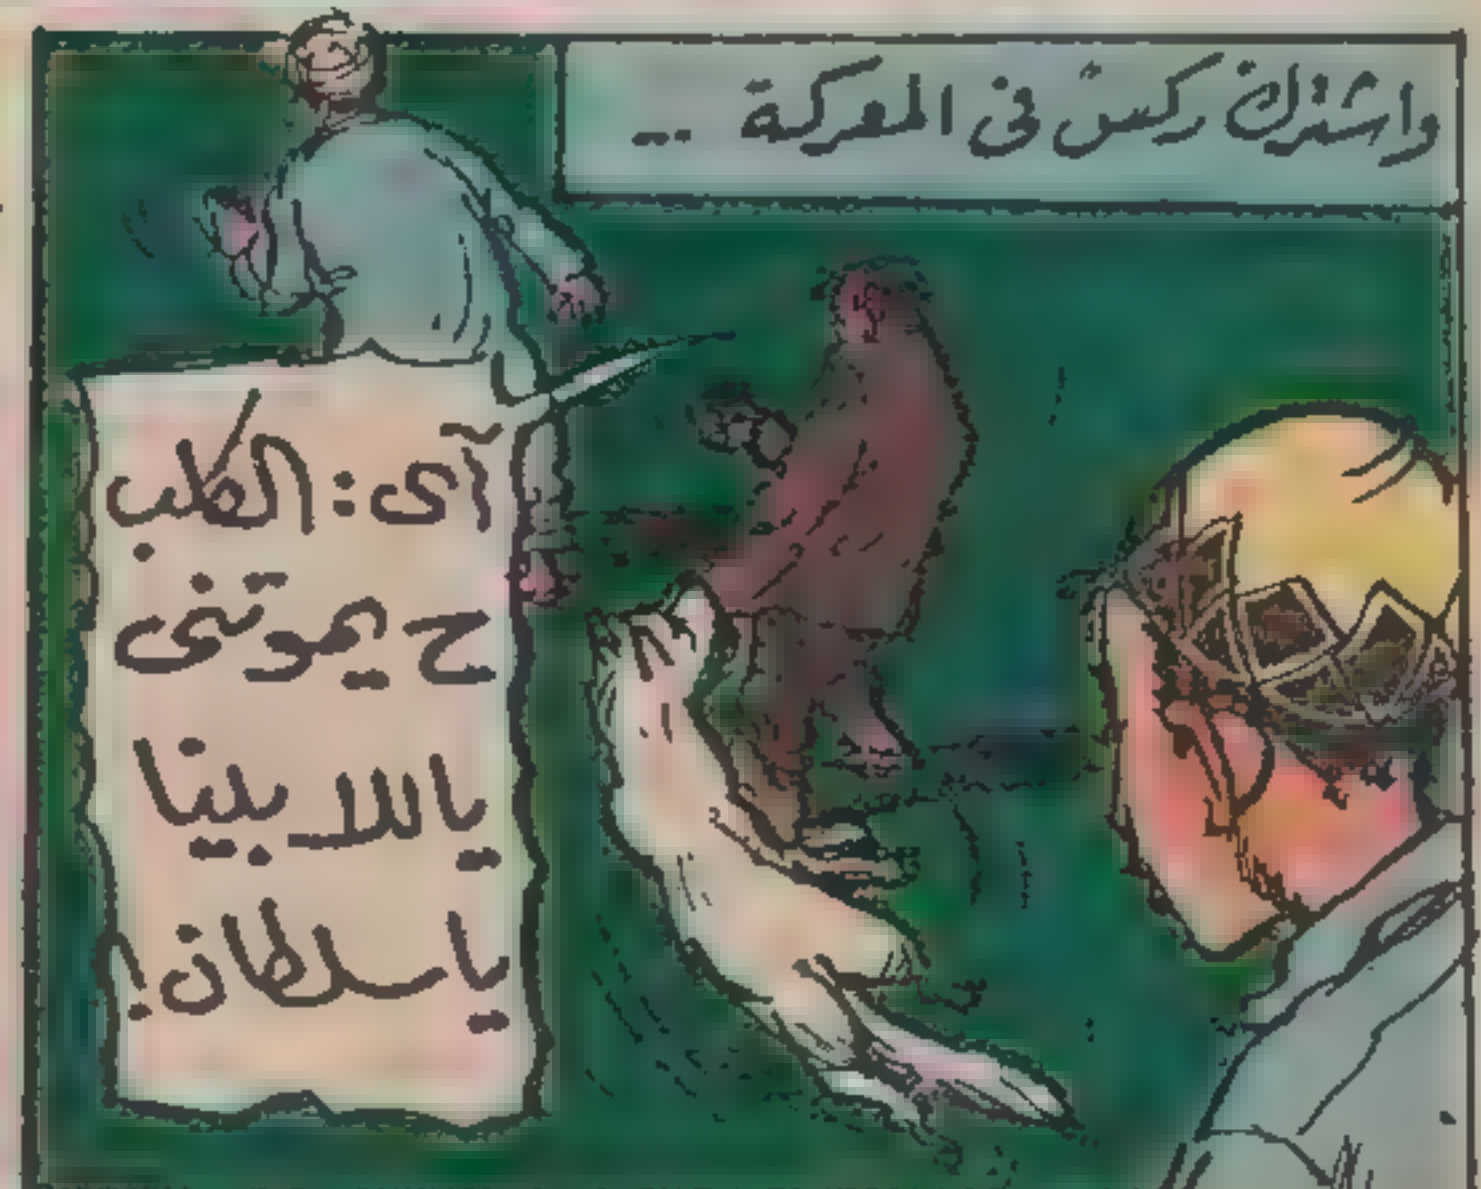 واشترك ركس فى المعركة ...
آى : الكلب
ح يموتنى
ياللا بينا
يا سلطان !